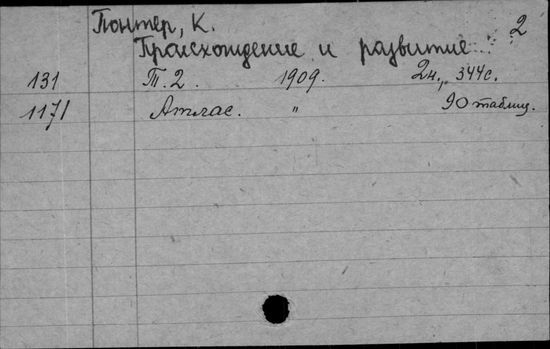 Понтер, К. 2
Происхождение и развитие
131 Т. 2. 1909. 2н., 344с.
1171 Атлас. " 90 таблиц.